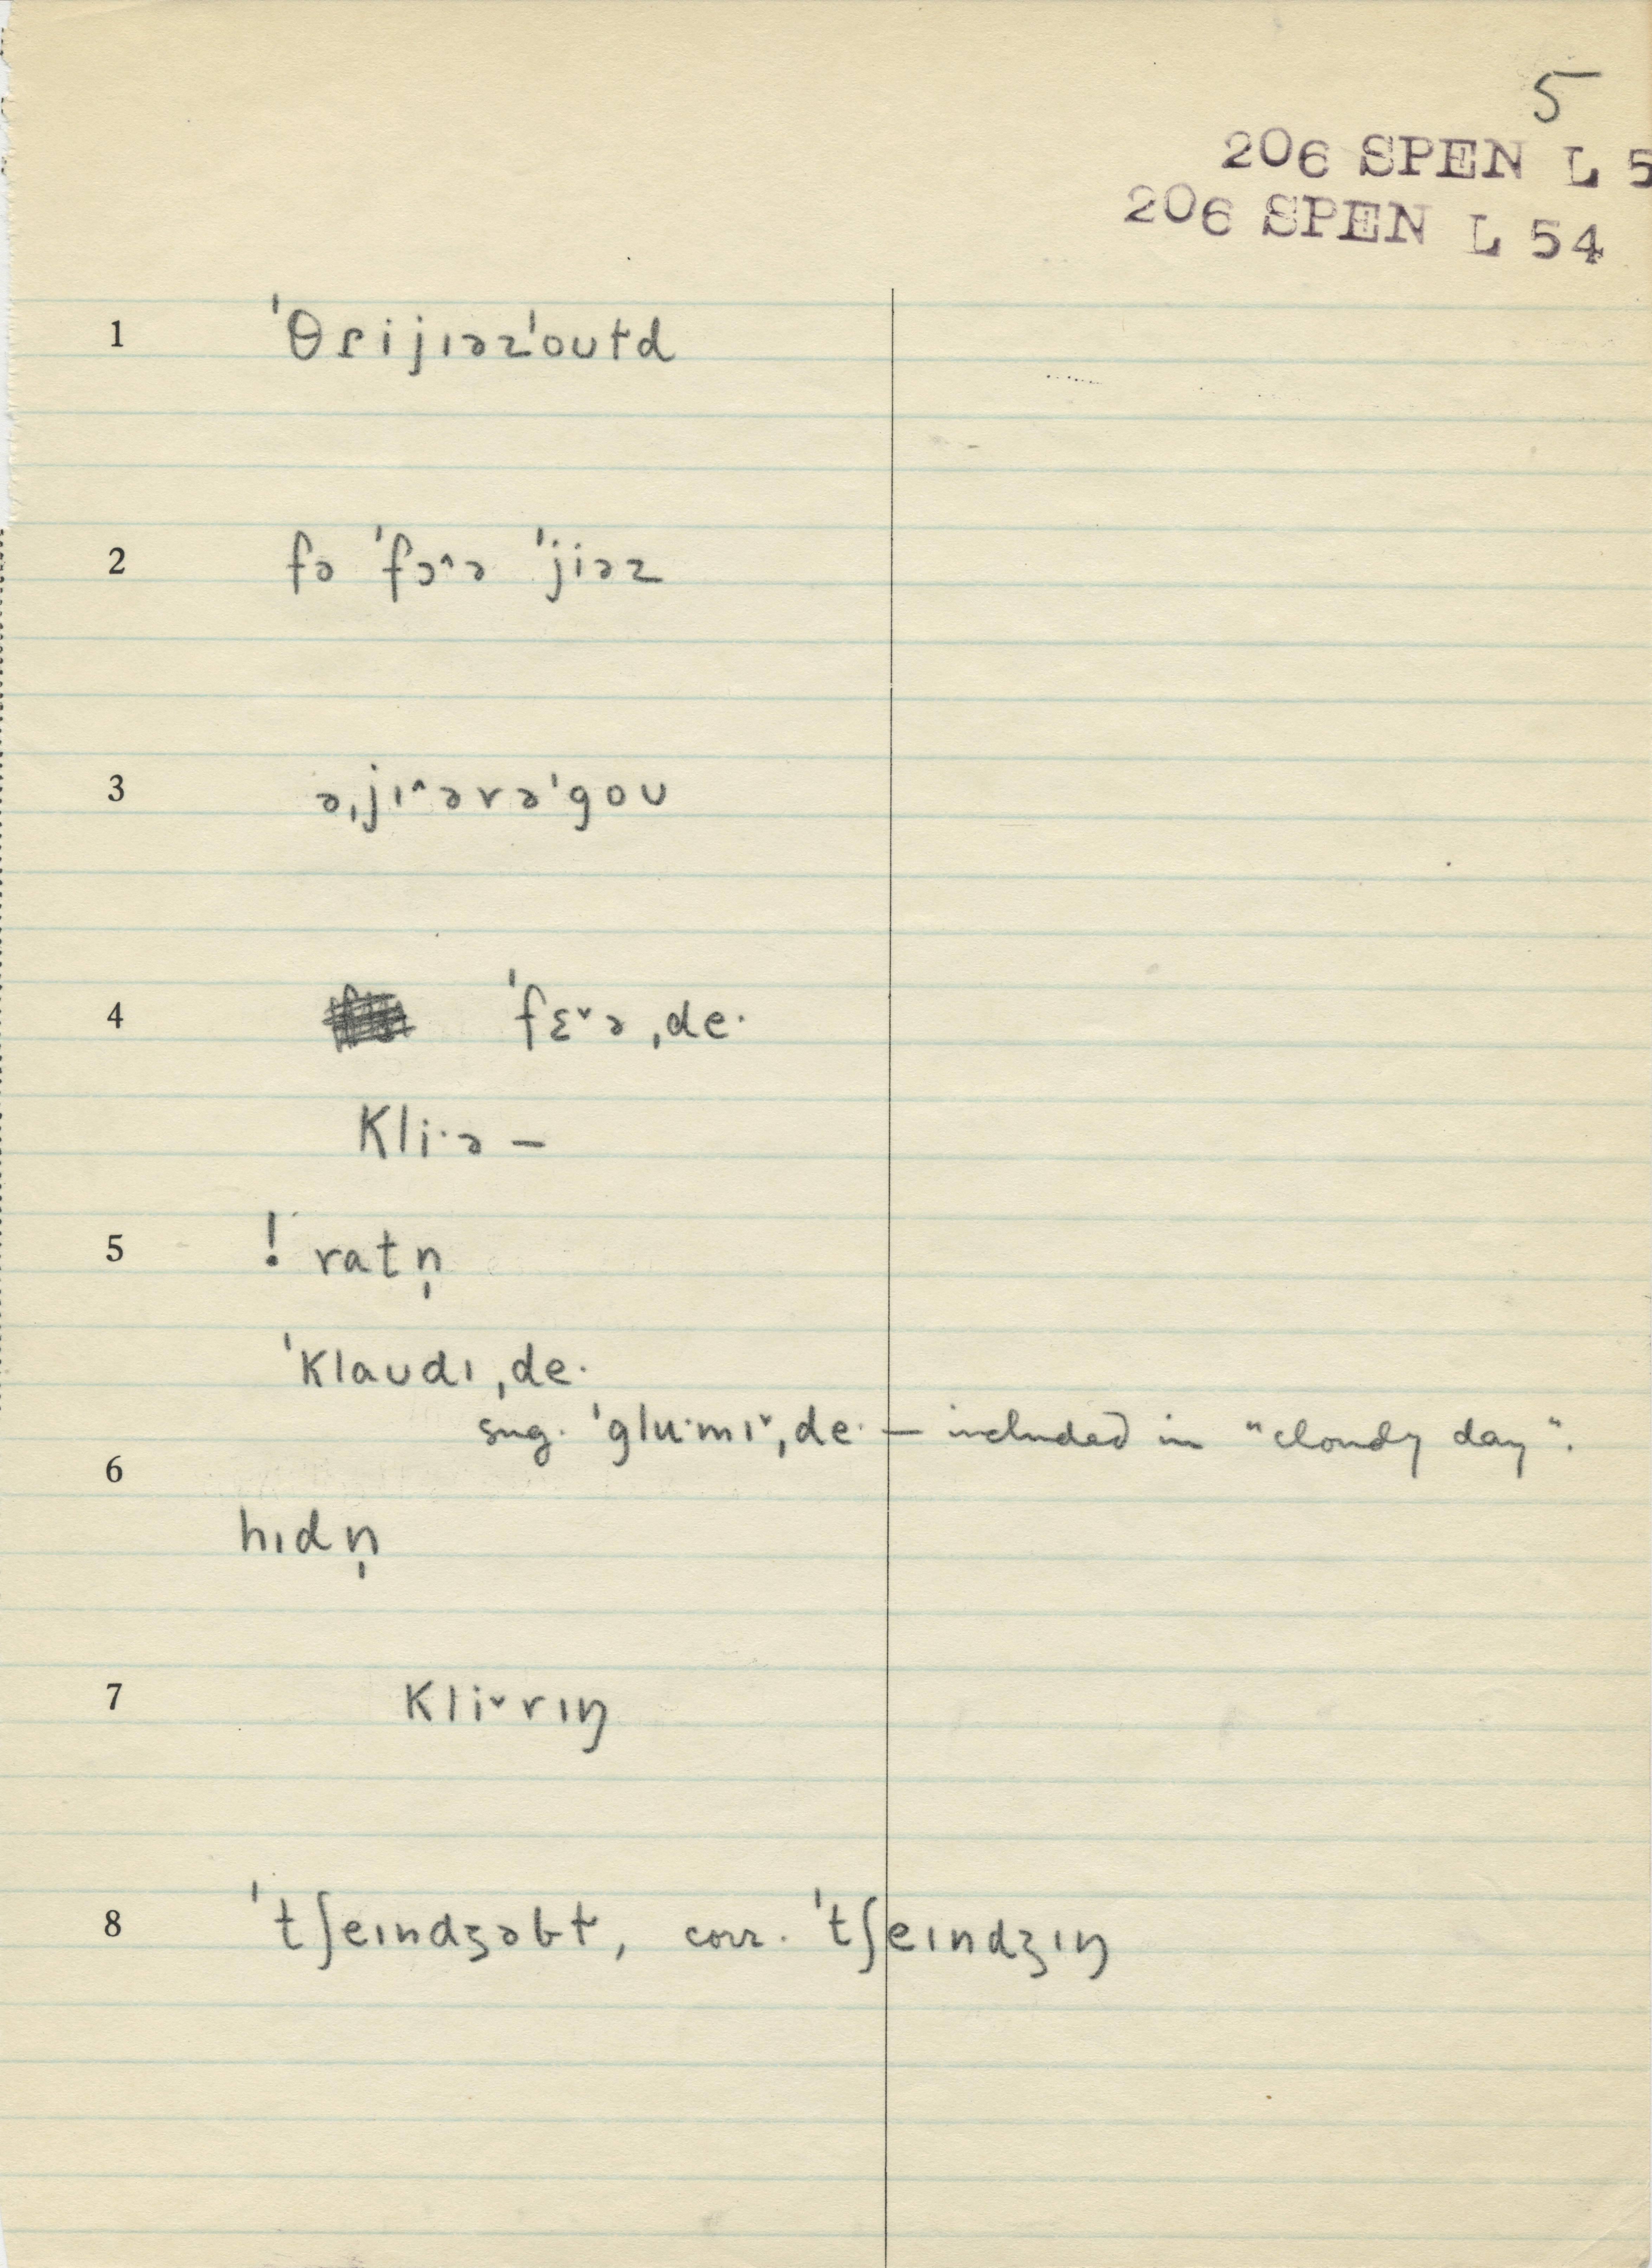 5
206 SPEN L 5
206 SPEN L 54
1 ˈθɾijɪəzˈoʊɫd
2 fə ˈfɔ^ə ˈjiəz
3 əˌjɪ^ərəˈgoʊ
4 ˈfɛˇəˌde·
Kli·ə –
5 ! ratn̩
ˈklaʊdɪˌde·
sug. ˈglu·mɪˇˌde· — included in "cloudy day".
6
hɪdn̩
7 kliˇrɪŋ
8 ˈtʃeɪndʒəbɫ, corr. ˈtʃeɪndʒɪŋ